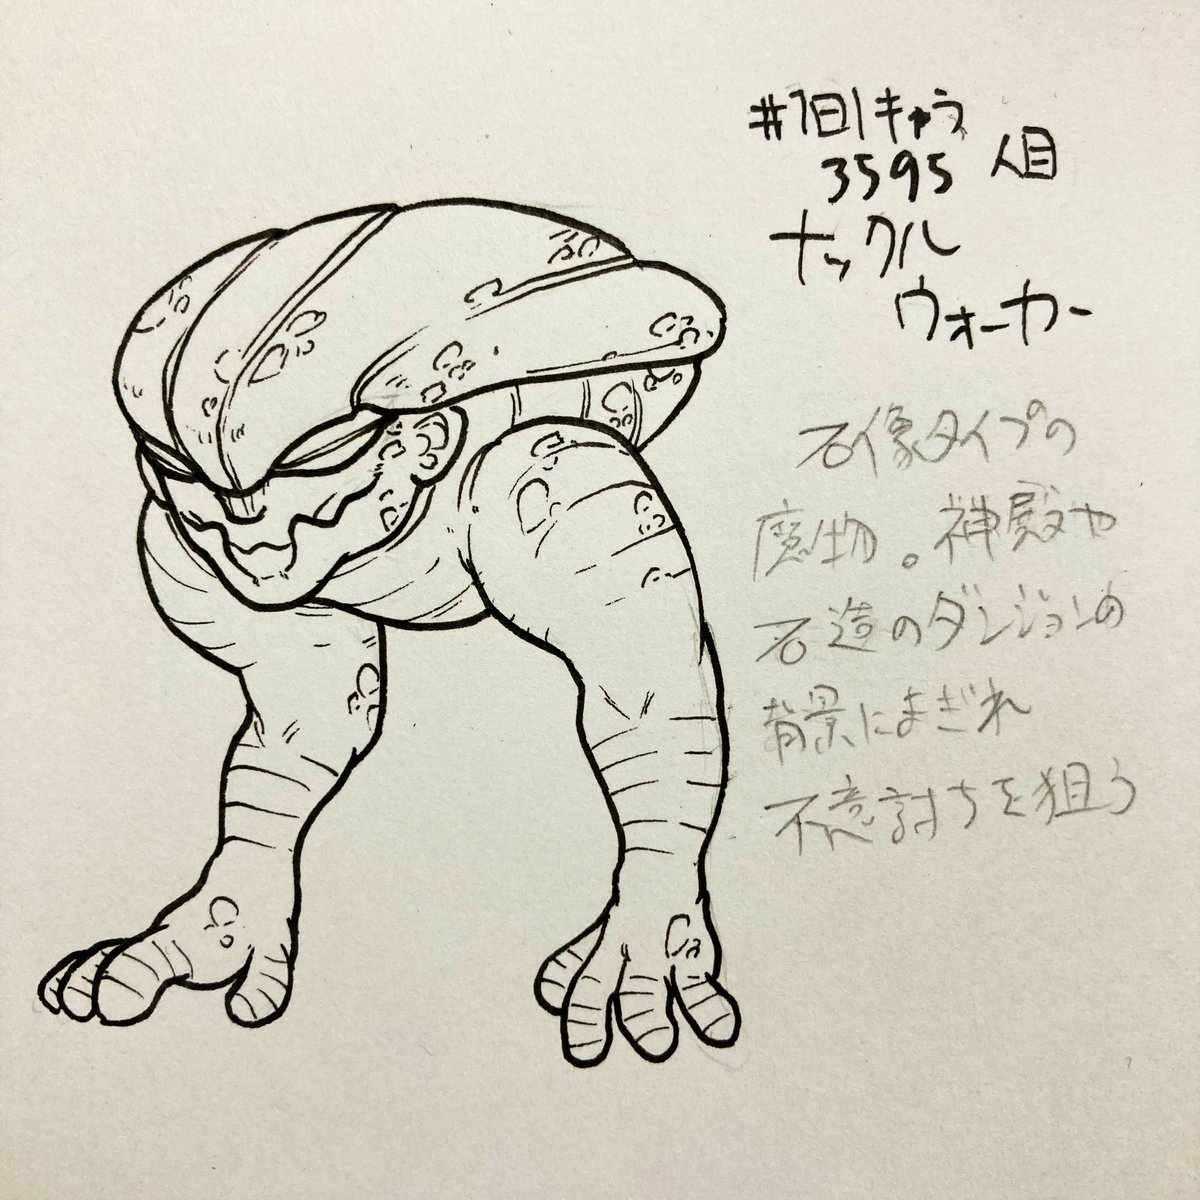 #1日1キャラ
3595人目
ナックル
ウォーカー
石像タイプの
魔物。神殿や
石造のダンジョンの
背景にまぎれ
不意討ちを狙う